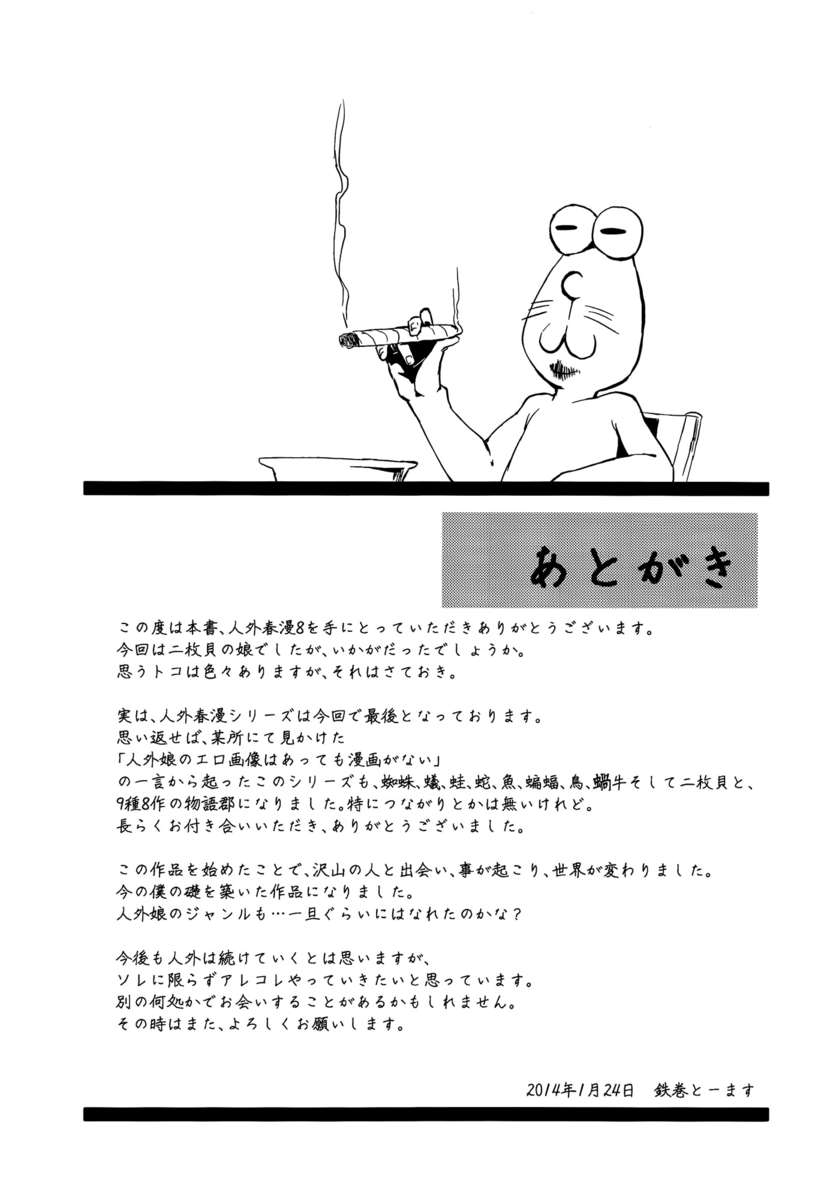 あとがき
この度は本書、人外春漫8を手にとっていただきありがとうございます。
今回は二枚貝の娘でしたが、いかがだったでしょうか。
思うトコは色々ありますが、それはさておき。
実は、人外春漫シリーズは今回で最後となっております。
思い返せば、某所にて見かけた
「人外娘のエロ画像はあっても漫画がない」
の一言から起ったこのシリーズも、蜘蛛、蟻、蛙、蛇、魚、蝙蝠、鳥、蝸牛そして二枚貝と、
9種8作の物語郡になりました。特につながりとかは無いけれど。
長らくお付き合いいただき、ありがとうございました。
この作品を始めたことで、沢山の人と出会い、事が起こり、世界が変わりました。
今の僕の礎を築いた作品になりました。
人外娘のジャンルも…一旦ぐらいにはなれたのかな?
今後も人外は続けていくとは思いますが、
ソレに限らずアレコレやっていきたいと思っています。
別の何処かでお会いすることがあるかもしれません。
その時はまた、よろしくお願いします。
2014年1月24日 鉄巻とーます